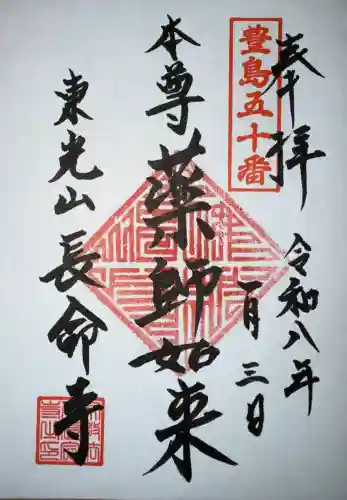 奉拝
豊島五十番
令和八年
一月三日
本尊
薬師如来
東光山
長命寺